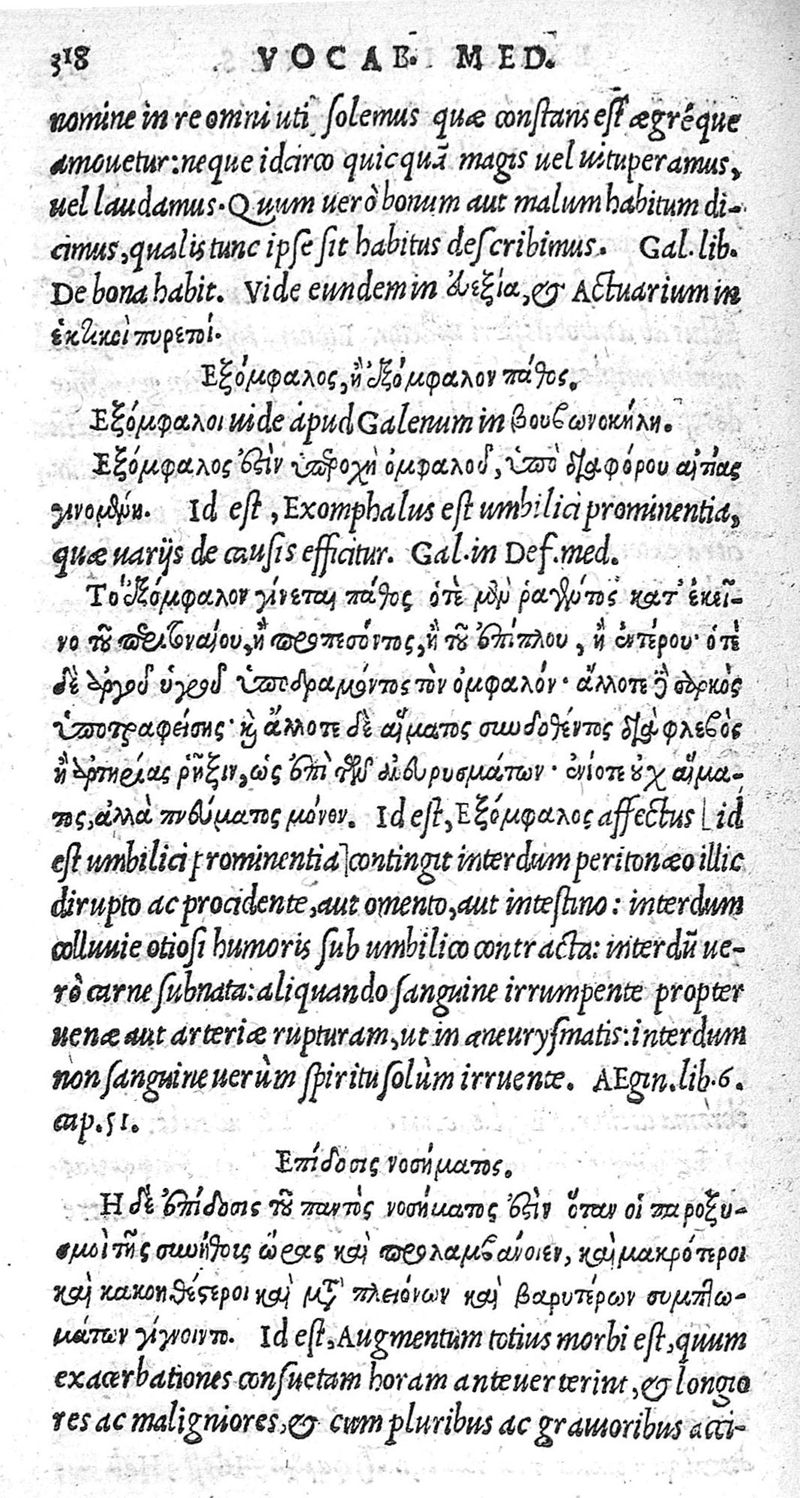 318 VOCAB. MED.
nomine in re omni uti solemus quæ constans est ægréque
amouetur: neque idcirco quicquã magis uel uituperamus,
uel laudamus. Quum uerò bonum aut malum habitum di-
cimus, qualis tunc ipse sit habitus describimus. Gal. lib.
De bona habit. Vide eundem in ἀεξία, & Actuarium in
ἑκτικοὶ πυρετοί.
Εξόμφαλος, ἢ ἐξόμφαλον πάθος.
Εξόμφαλοι uide apud Galenum in βουβωνοκήλη.
Εξόμφαλος ἐστὶν ὑπεροχὴ ὀμφαλοῦ, ὑπὸ διαφόρου αἰτίας
γινομένη. Id est, Exomphalus est umbilici prominentia,
quæ uarijs de causis efficitur. Gal. in Def. med.
Τὸ ἐξόμφαλον γίνεται πάθος ὁτὲ μὲν ῥαγέντος κατ' ἐκεῖ-
νο τοῦ περιτοναίου, ἢ προπεσόντος, ἢ τοῦ ἐπίπλου, ἢ ἐντέρου· ὁτὲ
δὲ ἀργοῦ ὑγροῦ ὑποδραμόντος τὸν ὀμφαλόν· ἄλλοτε δὲ σαρκὸς
ὑποτραφείσης· καὶ ἄλλοτε δὲ αἵματος συνδοθέντος διὰ φλεβὸς
ἢ ἀρτηρίας ῥῆξιν, ὡς ἐπὶ τῶν ἀνευρυσμάτων· ἐνίοτε οὐχ αἵμα-
τος, ἀλλὰ πνεύματος μόνον. Id est, Εξόμφαλος affectus [id
est umbilici prominentia] contingit interdum peritonæo illic
dirupto ac procidente, aut omento, aut intestino: interdum
colluuie otiosi humoris sub umbilico contracta: interdũ ue-
rò carne subnata: aliquando sanguine irrumpente propter
uenæ aut arteriæ rupturam, ut in aneurysmatis: interdum
non sanguine uerùm spiritu solùm irruente. AEgin. lib. 6.
cap. 51.
Επίδοσις νοσήματος.
Η δὲ ἐπίδοσις τοῦ παντὸς νοσήματος ἐστὶν ὅταν οἱ παροξυ-
σμοὶ τῆς συνήθοις ὥρας καὶ προλαμβάνοιεν, καὶ μακρότεροι
καὶ κακοηθέστεροι καὶ μετὰ πλειόνων καὶ βαρυτέρων συμπτω-
μάτων γίγνοιντο. Id est, Augmentum totius morbi est, quum
exacerbationes consuetam horam anteuerterint, & longio
res ac maligniores, & cum pluribus ac grauioribus acci-